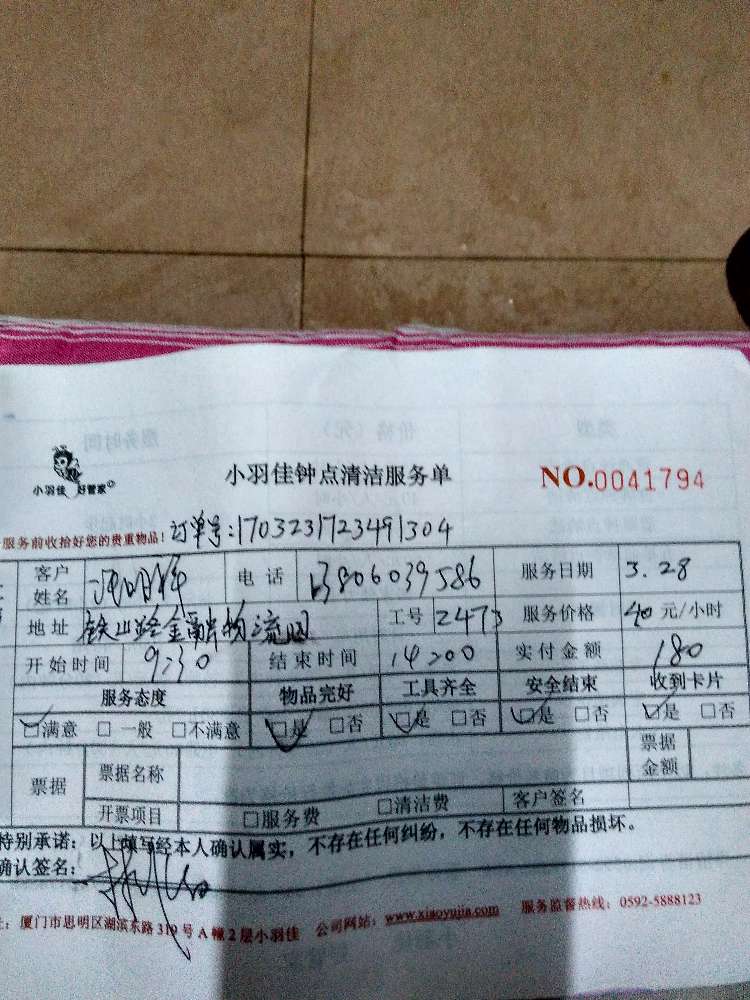 小羽佳 好管家
小羽佳钟点清洁服务单
NO.0041794
服务前收拾好您的贵重物品！
订单号:1703231723491304
客户姓名 电话 13806039586 服务日期 3.28
地址 铁山路金融物流园 工号 2473 服务价格 40 元/小时
开始时间 9:30 结束时间 14:00 实付金额 180
服务态度 物品完好 工具齐全 安全结束 收到卡片
☑满意 □一般 □不满意 ☑是 □否 ☑是 □否 ☑是 □否 ☑是 □否
票据 票据名称 票据金额
开票项目 □服务费 □清洁费 客户签名
特别承诺：以上填写经本人确认属实，不存在任何纠纷，不存在任何物品损坏。
确认签名：
厦门市思明区湖滨东路319号A幢2层小羽佳 公司网站：www.xiaoyujia.com 服务监督热线：0592-5888123